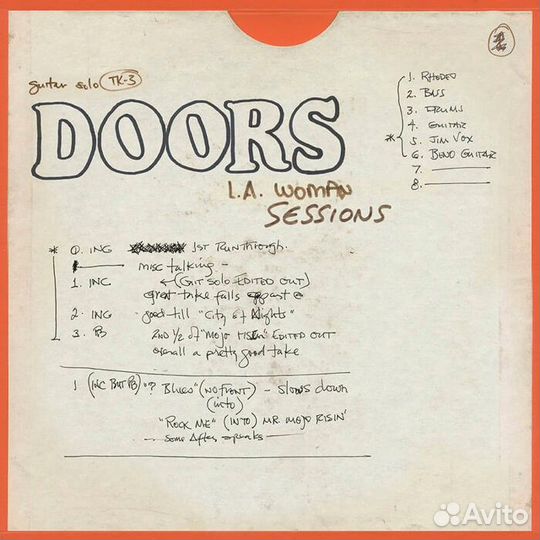 guitar solo TK-3
DOORS
L.A. WOMAN
SESSIONS
1. RHODES
2. BASS
3. DRUMS
4. GUITAR
* 5. JIM VOX
6. BENO GUITAR
7.
8.
* 0. INC 1ST RUNTHROUGH.
misc talking -
1. INC ←(GIT SOLO EDITED OUT)
great take falls apart @
2. INC good till "City of Nights"
3. PB 2ND 1/2 of "MOJO RISEN" EDITED OUT
overall a pretty good take
1 (INC BUT PB) "? BLUES" (NO FRONT) - SLOWS DOWN
(INTO)
"ROCK ME" (INTO) MR. MOJO RISIN'
- Some After speaks -
Avito